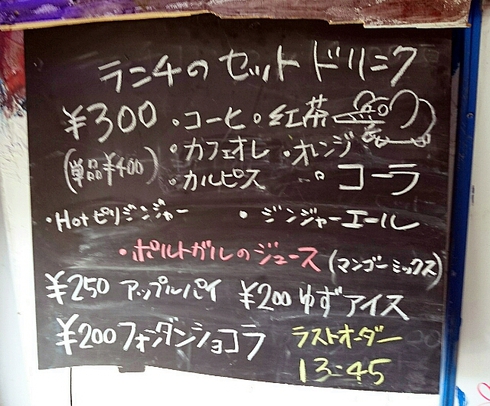 ランチのセットドリンク
¥300 ・コーヒ ・紅茶
(単品¥400) ・カフェオレ ・オレンジ
・カルピス ・コーラ
・Hotピリジンジャー ・ジンジャーエール
・ポルトガルのジュース(マンゴーミックス)
¥250 アップルパイ ¥200 ゆずアイス
¥200 フォンダンショコラ ラストオーダー
13:45